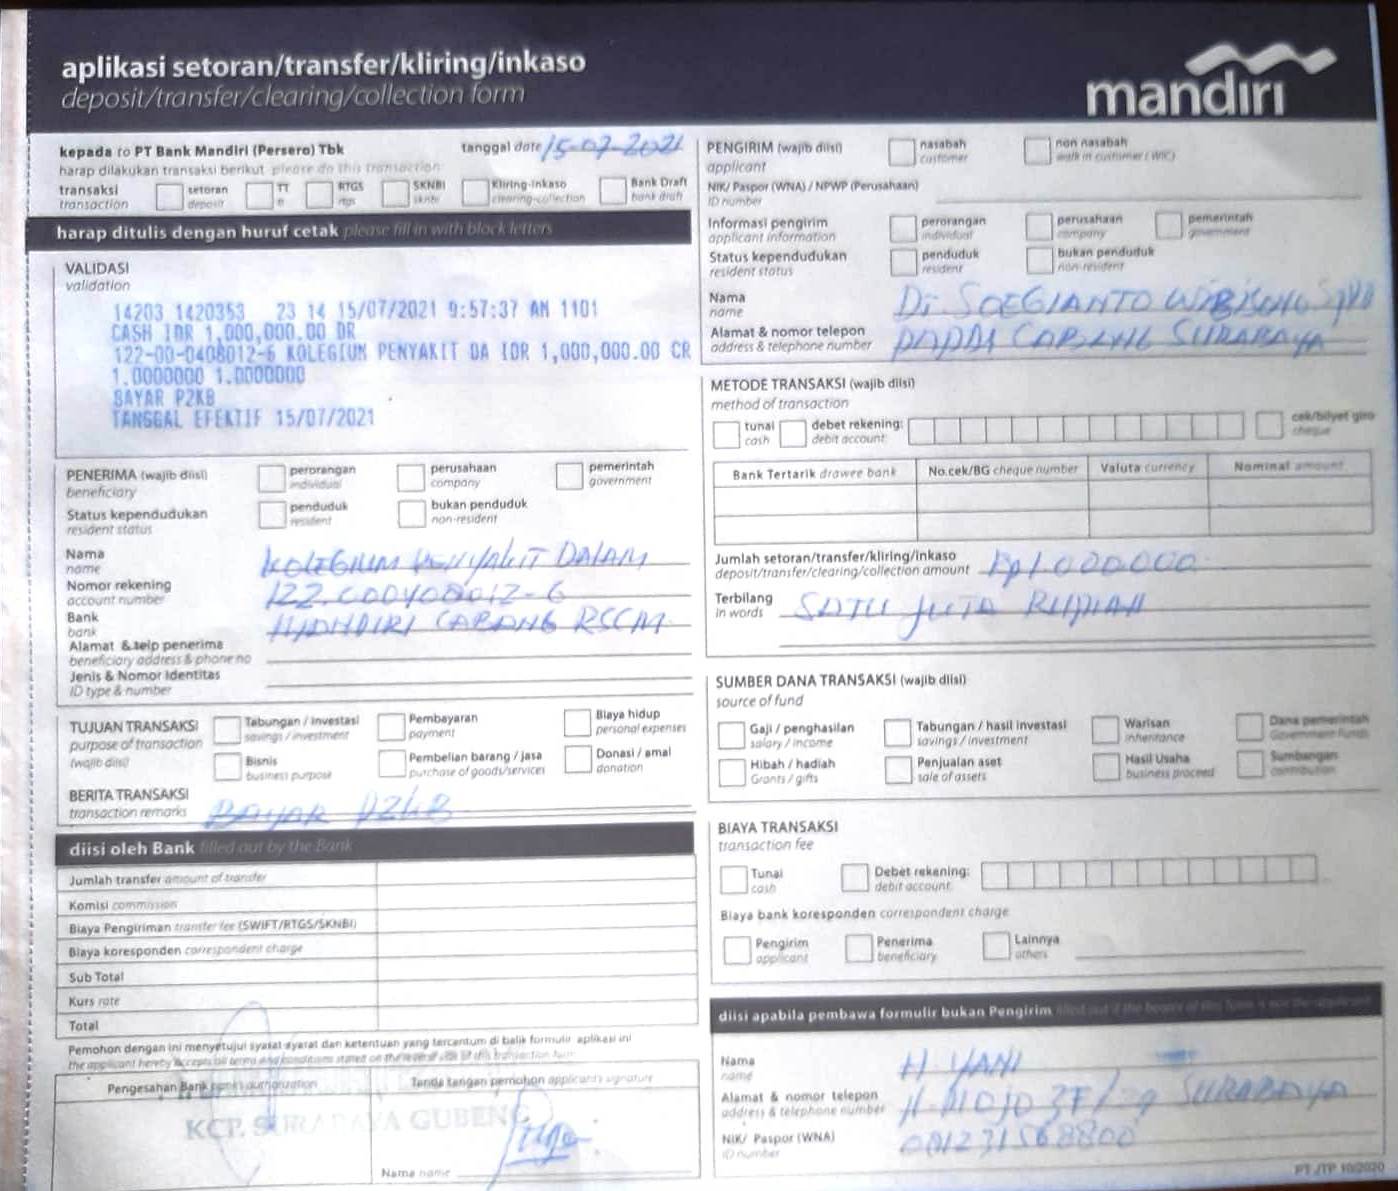 aplikasi setoran/transfer/kliring/inkaso
deposit/transfer/clearing/collection form
mandiri
kepada to PT Bank Mandiri (Persero) Tbk
tanggal date 15-07-2021
harap dilakukan transaksi berikut please do this transaction
transaksi
transaction
setoran
deposit
TT
tt
RTGS
rtgs
SKNBI
sknbi
Kliring-inkaso
clearing-collection
Bank Draft
bank draft
harap ditulis dengan huruf cetak please fill in with block letters
VALIDASI
validation
14203 1420353 23 14 15/07/2021 9:57:37 AM 1101
CASH IDR 1,000,000.00 DR
122-00-0408012-6 KOLEGIUM PENYAKIT DA IDR 1,000,000.00 CR
1.0000000 1.0000000
BAYAR P2KB
TANGGAL EFEKTIF 15/07/2021
PENERIMA (wajib diisi)
beneficiary
perorangan
individual
perusahaan
company
pemerintah
government
Status kependudukan
resident status
penduduk
resident
bukan penduduk
non-resident
Nama
name
KOLEGIUM PENYAKIT DALAM
Nomor rekening
account number
122.000408012-6
Bank
bank
MANDIRI CABANG RSCM
Alamat & telp penerima
beneficiary address & phone no
Jenis & Nomor Identitas
ID type & number
TUJUAN TRANSAKSI
purpose of transaction
(wajib diisi)
Tabungan / investasi
savings / investment
Pembayaran
payment
Biaya hidup
personal expenses
Bisnis
business purpose
Pembelian barang / jasa
purchase of goods/services
Donasi / amal
donation
BERITA TRANSAKSI
transaction remarks
BAYAR P2KB
diisi oleh Bank filled out by the Bank
Jumlah transfer amount of transfer
Komisi commission
Biaya Pengiriman transfer fee (SWIFT/RTGS/SKNBI)
Biaya koresponden correspondent charge
Sub Total
Kurs rate
Total
Pemohon dengan ini menyetujui syarat-syarat dan ketentuan yang tercantum di balik formulir aplikasi ini
the applicant hereby accepts all terms and conditions stated on the reverse side of this transaction form
Pengesahan Bank bank's authorization
Tanda tangan pemohon applicant's signature
KCP. SURABAYA GUBENG
Nama name
PENGIRIM (wajib diisi)
applicant
nasabah
customer
non nasabah
walk in customer (WIC)
NIK/ Paspor (WNA) / NPWP (Perusahaan)
ID number
Informasi pengirim
applicant information
perorangan
individual
perusahaan
company
pemerintah
government
Status kependudukan
resident status
penduduk
resident
bukan penduduk
non-resident
Nama
name
Dr. SOEGIANTO WIBISONO
Alamat & nomor telepon
address & telephone number
PAPDI CABANG SURABAYA
METODE TRANSAKSI (wajib diisi)
method of transaction
tunai
cash
debet rekening:
debit account:
cek/bilyet giro
cheque
Bank Tertarik drawee bank
No.cek/BG cheque number
Valuta currency
Nominal amount
Jumlah setoran/transfer/kliring/inkaso
deposit/transfer/clearing/collection amount
Rp1.000000
Terbilang
in words
SATU JUTA RUPIAH
SUMBER DANA TRANSAKSI (wajib diisi)
source of fund
Gaji / penghasilan
salary / income
Tabungan / hasil investasi
savings / investment
Warisan
inheritance
Dana pemerintah
Government funds
Hibah / hadiah
Grants / gifts
Penjualan aset
sale of assets
Hasil Usaha
business proceed
Sumbangan
contribution
BIAYA TRANSAKSI
transaction fee
Tunai
cash
Debet rekening:
debit account:
Biaya bank koresponden correspondent charge
Pengirim
applicant
Penerima
beneficiary
Lainnya
others
diisi apabila pembawa formulir bukan Pengirim filled out if the bearer of this form is not the applicant
Nama
name
H. YANI
Alamat & nomor telepon
address & telephone number
SURABAYA
NIK/ Paspor (WNA)
ID number
081231568800
PT JTP 10/2020